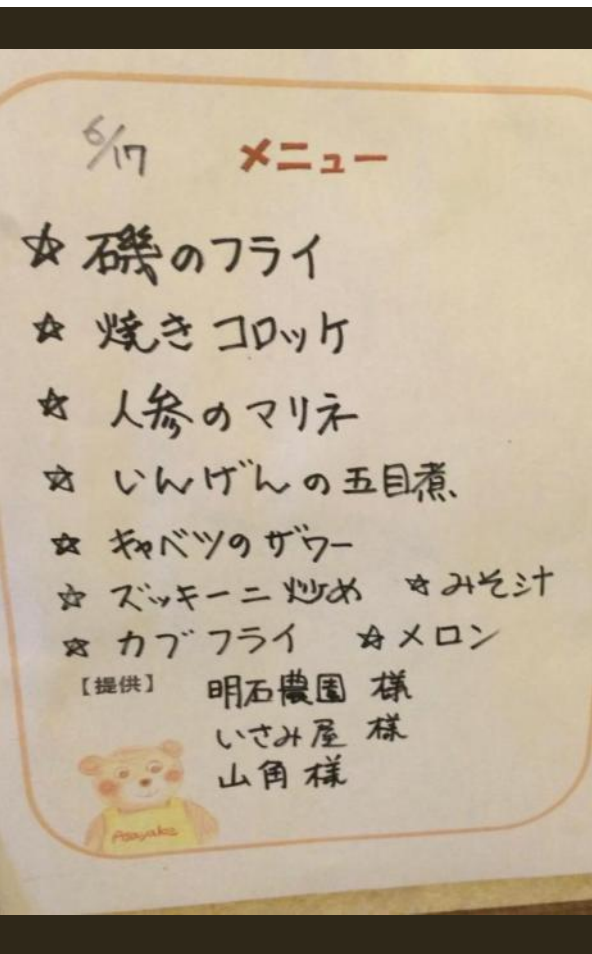 6/17 メニュー
☆ 磯のフライ
☆ 焼きコロッケ
☆ 人参のマリネ
☆ いんげんの五目煮
☆ キャベツのザワー
☆ ズッキーニ炒め ☆ みそ汁
☆ カブフライ ☆ メロン
【提供】 明石農園 様
いさみ屋 様
山角 様